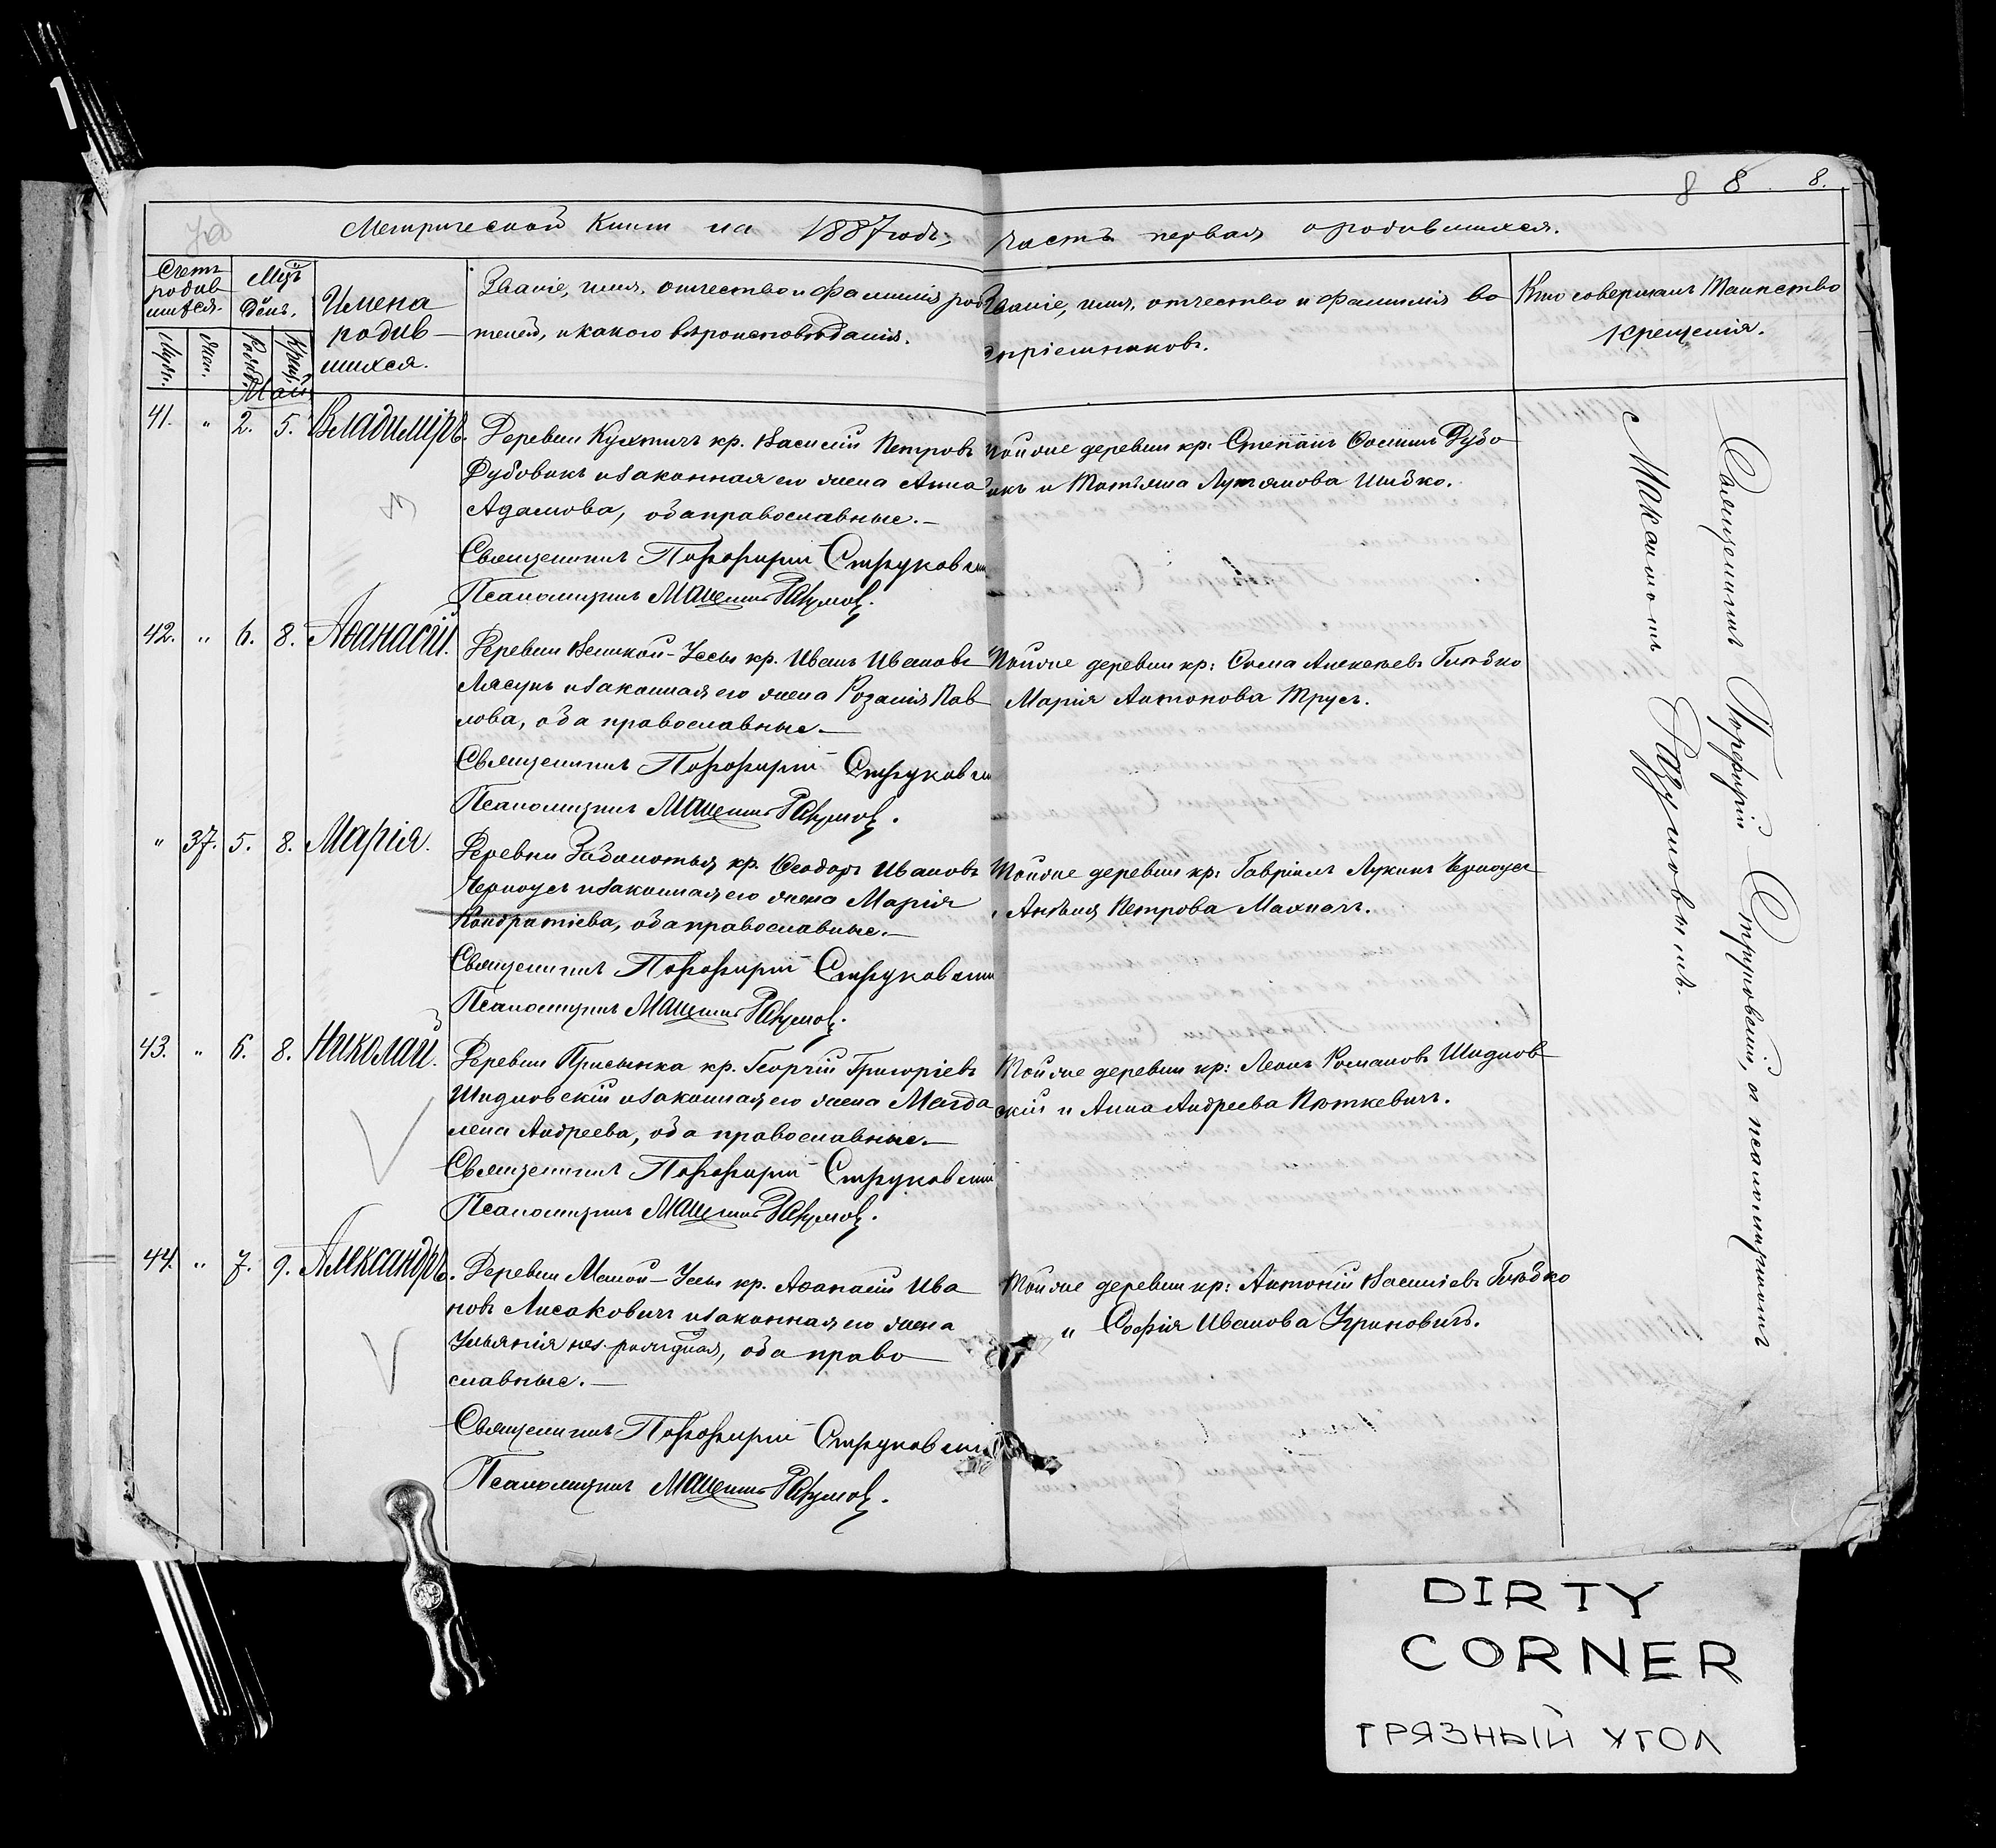 8 8 8.
Метрической книги на 1887 годъ, часть первая о родившихся.
Счетъ родив шихся.
Мцъ День.
Имена родив— шихся.
Званіе, имя, отчество и фамилія роди
телей, и какого вѣроисповѣданія.
Званіе, имя, отчество и фамилія во
спріемниковъ.
Кто совершалъ Таинство
крещенія.
Мужс. Жен. Рожд. Крещ.
Май
41. " 2. 5. Владиміръ.
Деревни Кухтичъ кр. Василій Петровъ
Дубовикъ и законная его жена Анна
Адамова, оба православные.—
Священникъ Порфирій Струковскій
Псаломщикъ
Той же деревни кр: Степанъ Ѳоминъ Дубо
викъ и Татьяна Лукянова Шибко.
42. " 6. 8. Аѳанасій.
Деревни Великой-Уссы кр. Иванъ Ивановъ
Лясунъ и законная его жена Розалія Пав
лова, оба православные.—
Священникъ Порфирій Струковскій
Псаломщикъ
Той же деревни кр: Ѳома Алексѣевъ Глѣбко
Марія Антонова Трусъ.
" 37. 5. 8. Марія.
Деревни Заболотья кр. Ѳеодоръ Ивановъ
Черноусъ и законная его жена Марія
Кондратіева, оба православные.—
Священникъ Порфирій Струковскій
Псаломщикъ
Той же деревни кр: Гавріилъ Лукинъ Черноусъ
Петрова Махначъ.
43. " 6. 8. Николай.
Деревни Присынка кр. Георгій Григоріевъ
Шидловскій и законная его жена Магда
лена Андреева, оба православные.—
Священникъ Порфирій Струковскій
Псаломщикъ
Той же деревни кр: Леонъ Романовъ Шидлов
скій и Анна Андреева Пяткевичъ.
44. " 7. 9. Александръ.
Деревни Малой-Уссы кр. Аѳанасій Ива
новъ Лисаковичъ и законная его жена
Ульянія оба право
славные.—
Священникъ Порфирій Струковскій
Псаломщикъ
Той же деревни кр: Антоній Василіевъ Глѣбко
" Софія Иванова Угриновичъ.
Священникъ Порфирій Струковскій, съ псаломщикомъ
Макаломъ Разумовичемъ.
DIRTY
CORNER
ГРЯЗНЫЙ УГОЛ